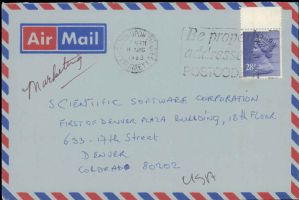 Air Mail
Be prop
addresse
POSTCOD
28
Marketing
SCIENTIFIC SOFTWARE CORPORATION
FIRST OF DENVER PLAZA BUILDING, 18th FLOOR
633 - 17th Street
DENVER
COLORADO 80202
USA